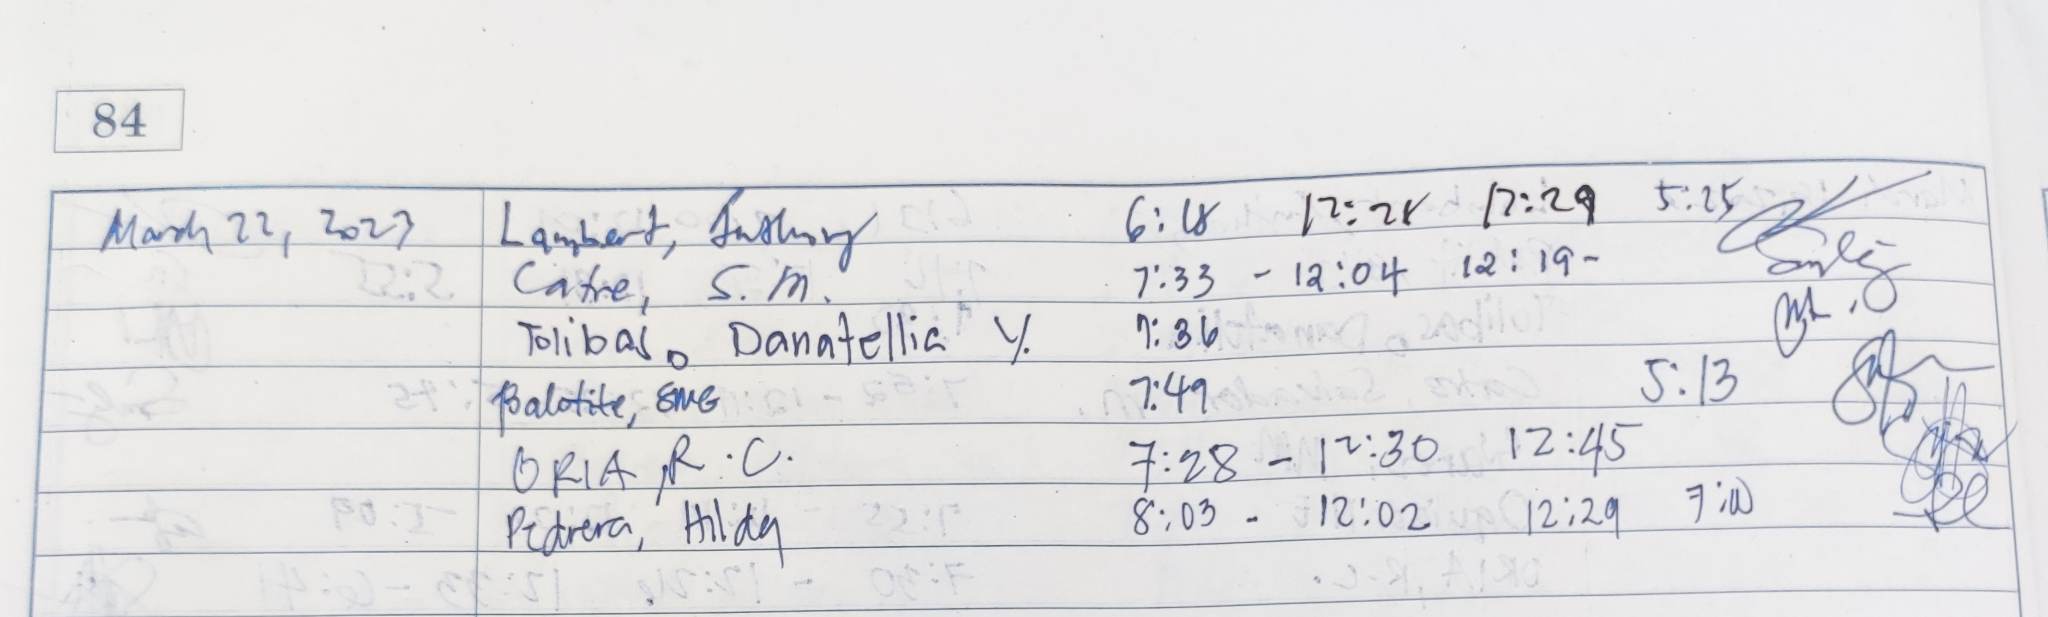 84
March 22, 2023 Lambert, Anthony 6:18 12:28 12:29 5:25
Catre, S.M. 7:33 - 12:04 12:19-
Tolibas, Danatellia Y. 7:36
Balotite, SMG 7:49 5:13
ORIA, R.C. 7:28 - 12:30 12:45
Pedrera, Hilda 8:03 - 12:02 12:29